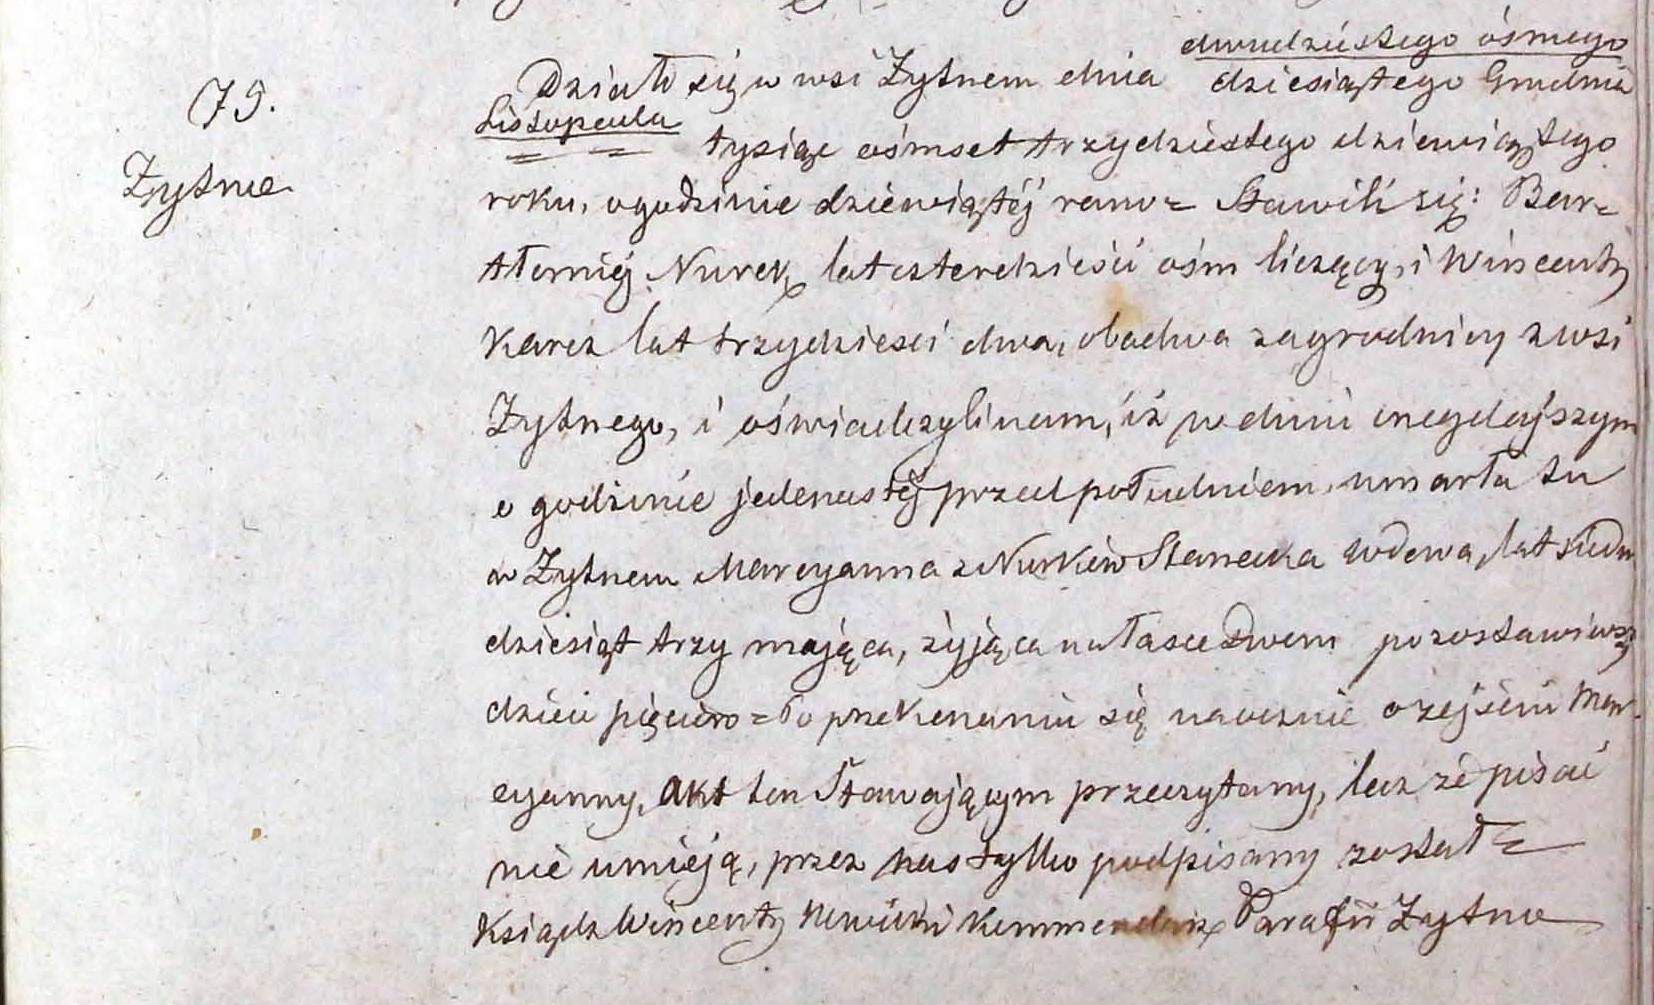 dwudziestego ósmego
79. Działo się w wsi Żytnem dnia dziesiątego Grudnia
Listopada tysiąc ośmset trzydziestego dziewiątego
Żytne roku, o godzinie dziewiątéj rano = Stawili się: Bar=
tłomiéj Nurek lat czterdzieści ośm liczący, i Wincenty
Karcz lat trzydzieści dwa, obadwa zagrodnicy z wsi
Żytnego, i oświadczyli nam, iż w dniu onegdajszym
o godzinie jedenastéj przed południem, umarła tu
w Żytnem Maryanna z Nurków Stanecka wdowa, lat siedm
dziesiąt trzy mająca, żyjąca na łasce Dwom pozostawiwszy
dzieci pięcioro = Po przekonaniu się naocznie o zejściu Mar=
yanny, Akt ten Stawającym przeczytany, lecz że pisać
nie umieją, przez nas tylko podpisany został =
Ksiądz Wincenty Kommendarz Parafii Żytno